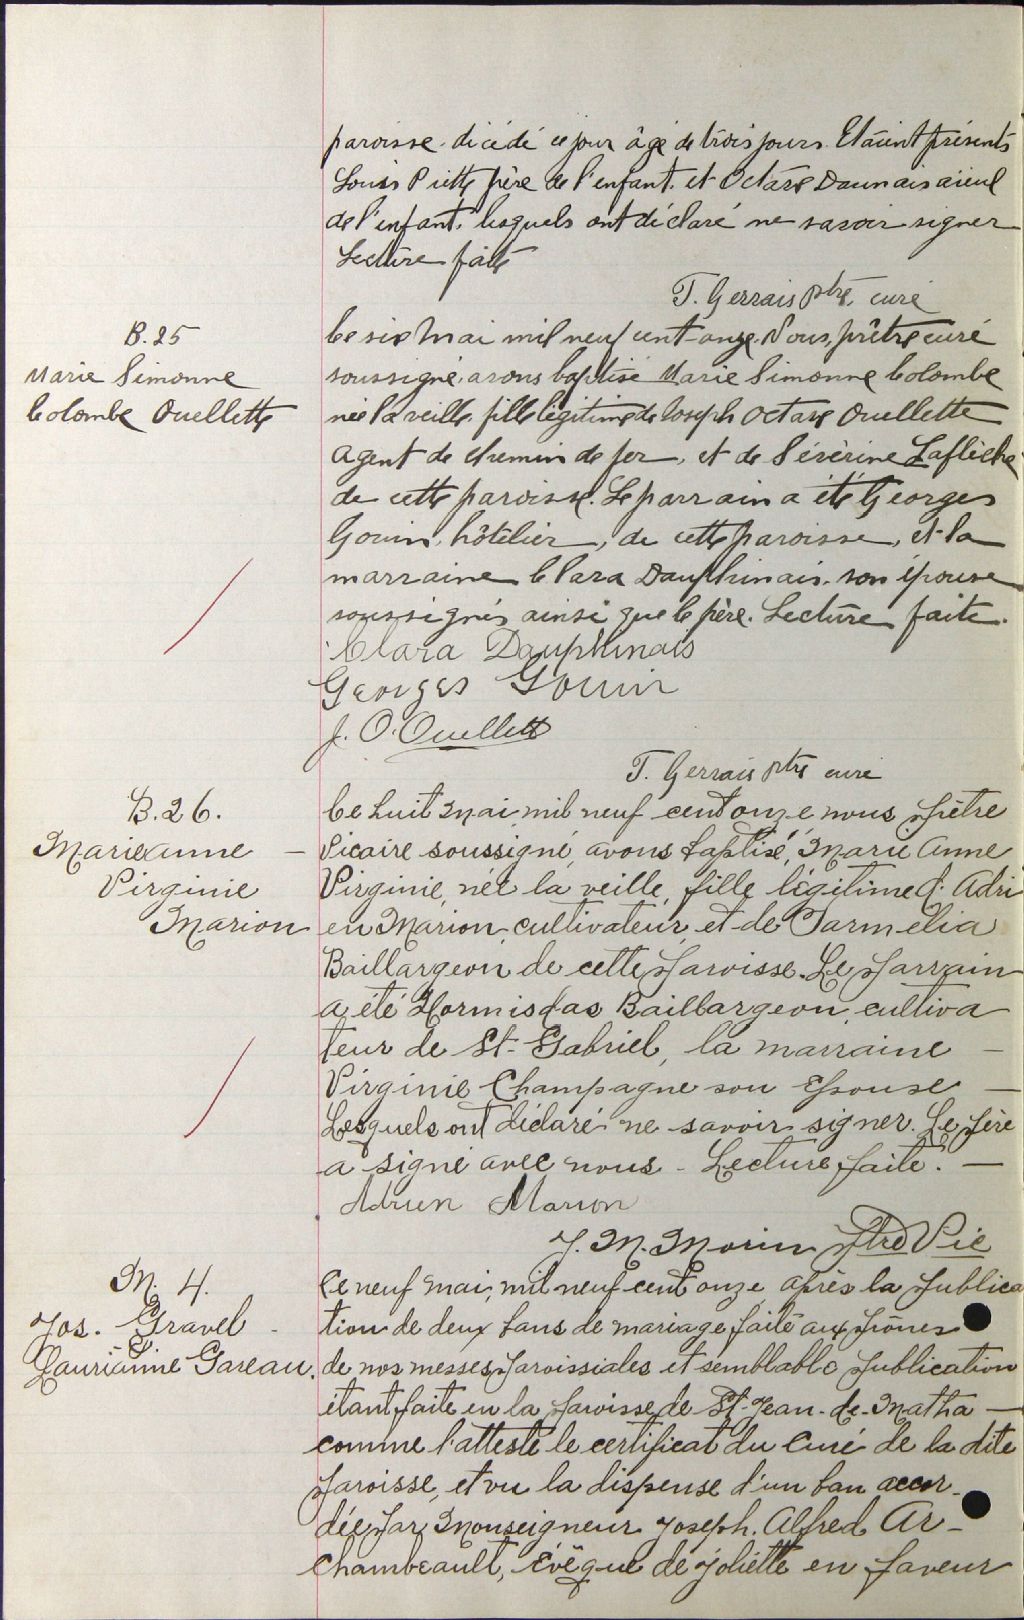 paroisse décédé ce jour âgé de trois jours. Etaient présents
Louis Piette père de l'enfant, et Octave Daunais aieul
de l'enfant, lesquels ont déclaré ne savoir signer
Lecture faite
T. Gervais Ptre, curé
B. 25
Marie Simonne
Colombe Ouellette
Le six mai mil neuf cent-onze, Nous, prêtre curé
soussigné, avons baptisé Marie Simonne Colombe
née la veille, fille légitime de Joseph Octave Ouellette
agent de chemin de fer, et de Séverine Laflèche
de cette paroisse. Le parrain a été Georges
Gouin, hôtelier, de cette paroisse, et la
marraine Clara Dauphinais, son épouse
soussignés ainsi que le père. Lecture faite.
Clara Dauphinais
Georges Gouin
J. O. Ouellett
T. Gervais Ptre curé
B. 26.
Marie Anne
Virginie
Marion
Le huit mai mil neuf cent onze nous prêtre
Vicaire soussigné, avons baptisé, Marie Anne
Virginie, née la veille, fille légitime d' Adri
en Marion, cultivateur, et de Parmelia
Baillargeon de cette paroisse. Le parrain
a été Hormisdas Baillargeon, cultiva
teur de St-Gabriel, la marraine —
Virginie Champagne son épouse —
Lesquels ont déclaré ne savoir signer. Le père
a signé avec nous - Lecture faite. —
Adrien Marion
J. M. Morin Ptre Vic
M. 4.
Jos. Gravel
&
Laurianne Gareau.
Le neuf mai, mil neuf cent onze après la publica
tion de deux bans de mariage faite aux prônes
de nos messes paroissiales et semblable publication
étant faite en la paroisse de St-Jean-de-Matha —
comme l'atteste le certificat du Curé de la dite
paroisse, et vu la dispense d'un ban accor-
dée par Monseigneur Joseph. Alfred Ar-
chambeault, évêque de Joliette en faveur